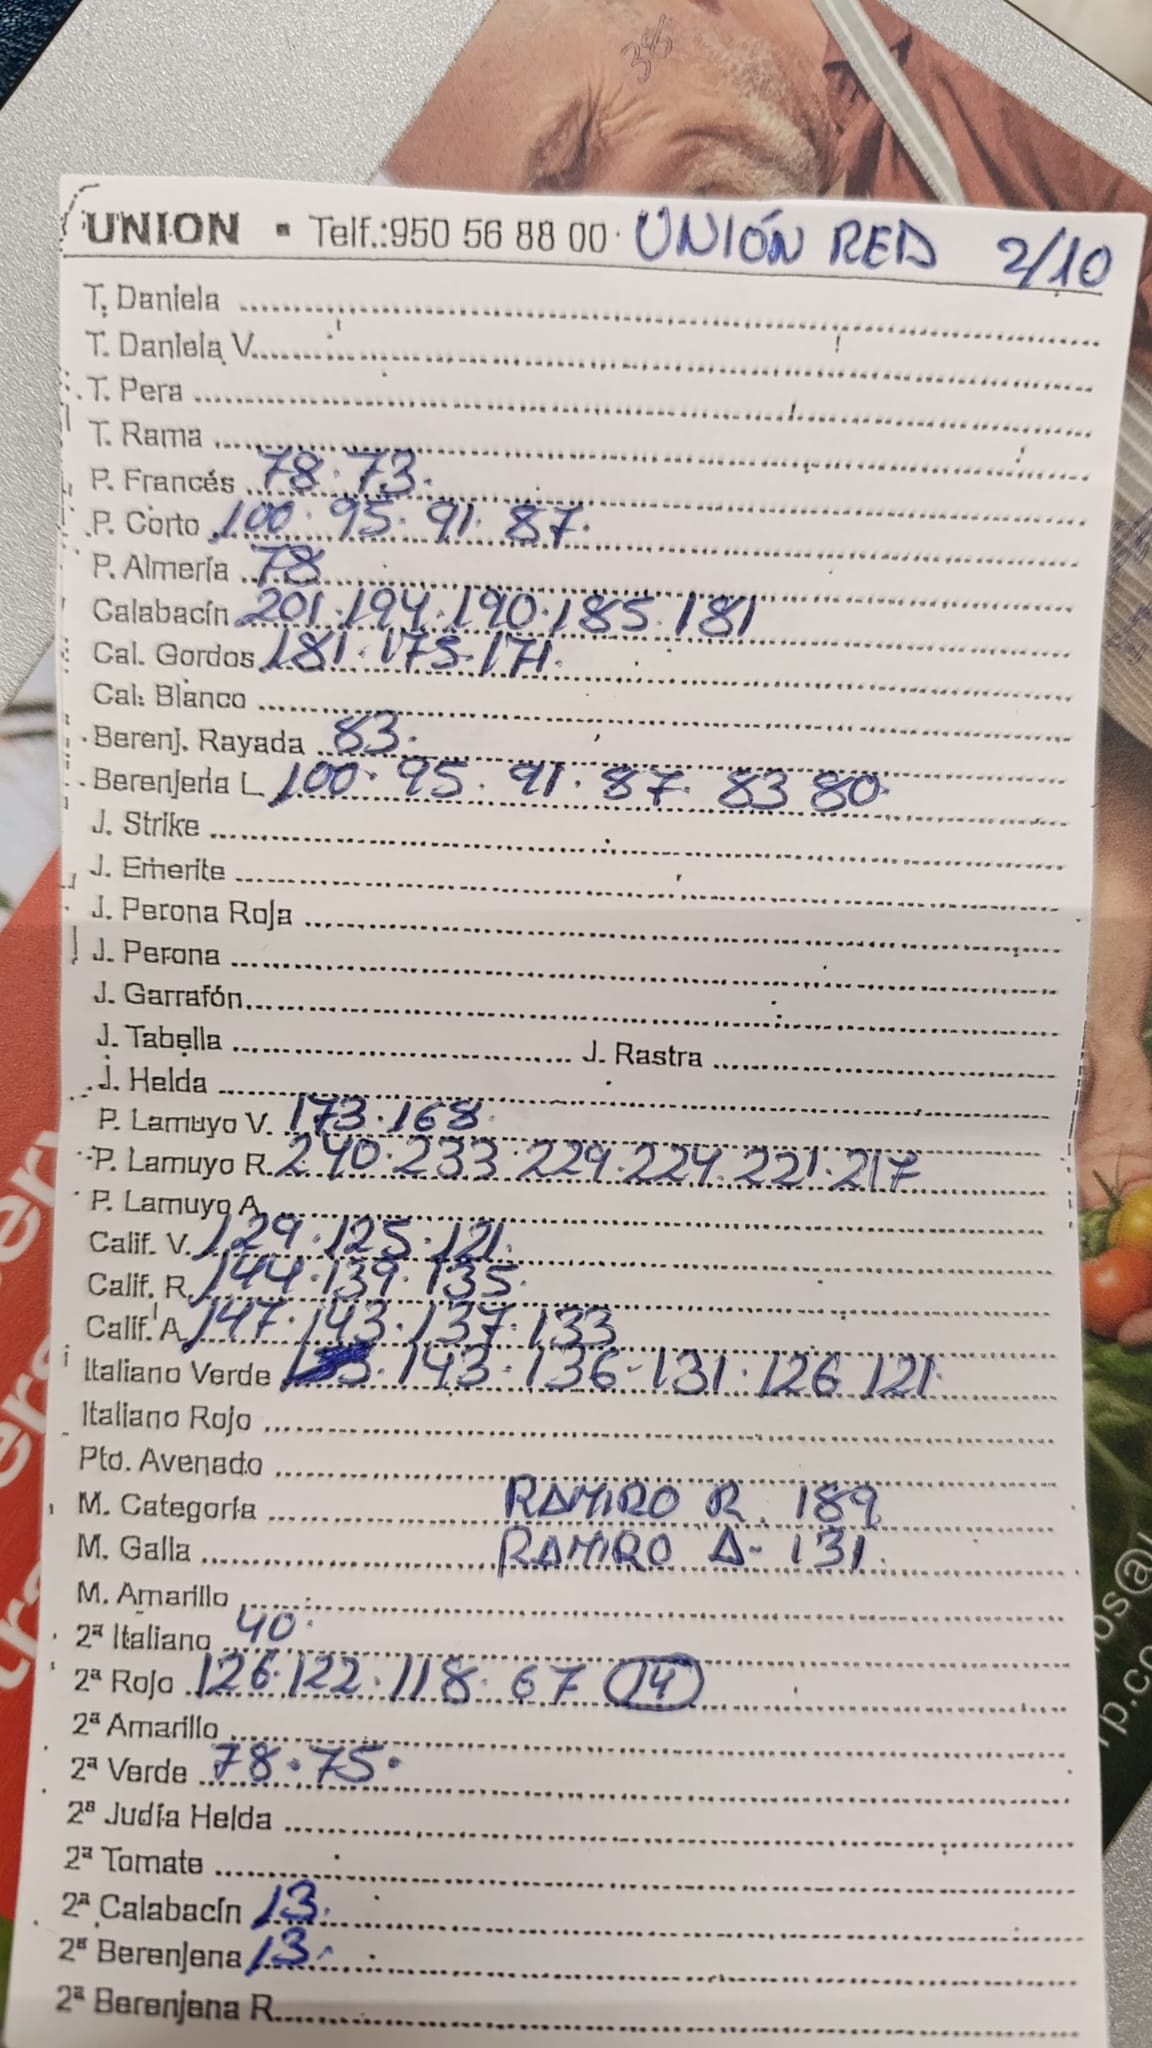 UNION ▪ Telf.:950 56 88 00 · UNIÓN RED 2/10
T. Daniela
T. Daniela V.
T. Pera
T. Rama
P. Francés 78·73·
P. Corto 100·95·91·87·
P. Almería 78
Calabacín 201·194·190·185·181
Cal. Gordos 181·175·171·
Cal. Blanco
Berenj. Rayada 83·
Berenjena L. 100·95·91·87·83 80·
J. Strike
J. Emerite
J. Perona Roja
J. Perona
J. Garrafón
J. Tabella J. Rastra
J. Helda
P. Lamuyo V. 173·168·
P. Lamuyo R. 240·233·229·224·221·217
P. Lamuyo A.
Calif. V. 129·125·121·
Calif. R. 144·139·135·
Calif. A. 147·143·137·133
Italiano Verde 143·136·131·126 121·
Italiano Rojo
Pto. Avenado
M. Categoría RAMIRO R. 189
M. Galla RAMIRO A- 131
M. Amarillo
2ª Italiano 40·
2ª Rojo 126·122·118·67 14
2ª Amarillo
2ª Verde 78·75·
2ª Judía Helda
2ª Tomate
2ª Calabacín 13·
2ª Berenjena 13·
2ª Berenjena R.
os@
p.co